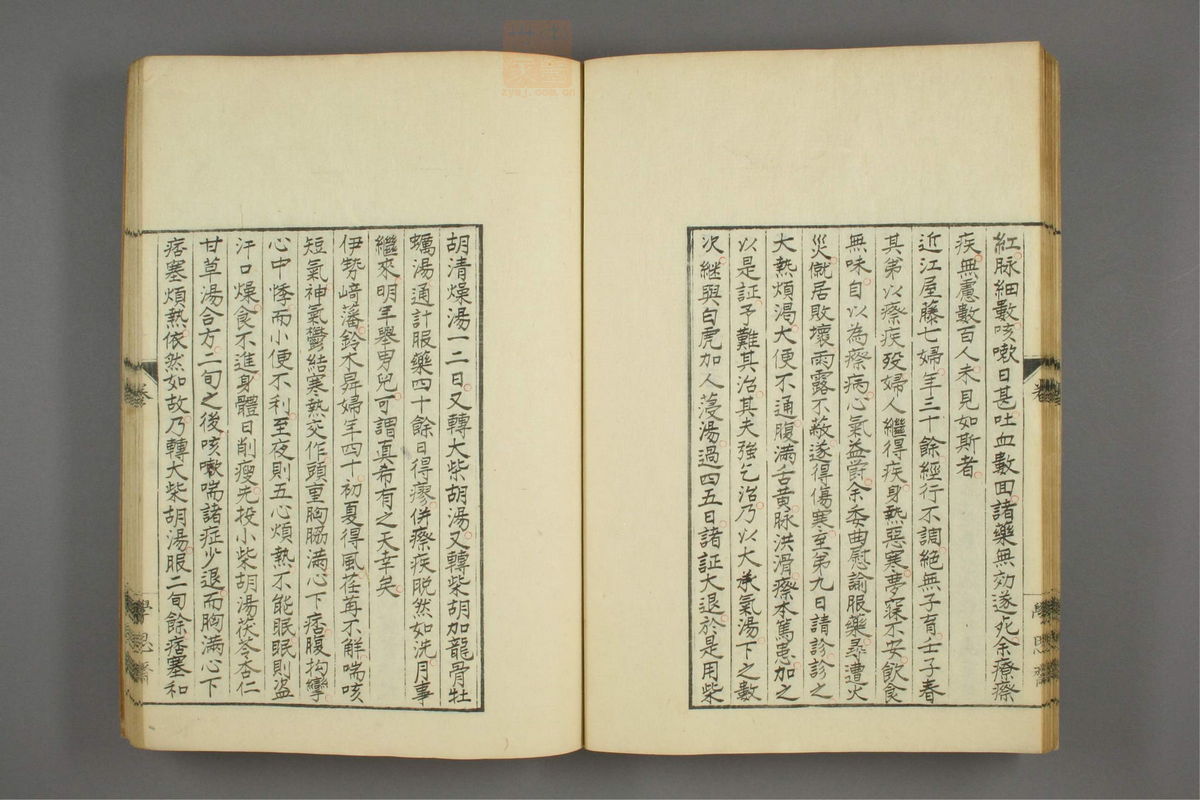 紅脉細數咳嗽日甚吐血數回諸藥無効遂死余療瘵
疾無慮數百人未見如斯者
近江屋藤七婦年三十餘經行不調絕無子育壬子春
其弟以瘵疾殁婦人繼得疾身熱惡寒夢寐不安飲食
無味自以為瘵病心氣益欝余委曲慰諭服藥暴遭火
災僦居敗壞雨露不蔽遂得傷寒至第九日請診診之
大熱煩渴大便不通腹滿舌黄脉洪滑瘵本篤患加之
以是証予難其治其夫強乞治乃以大承氣湯下之數
次継與白虎加人薓湯過四五日諸証大退於是用柴
胡清燥湯一二日又轉大柴胡湯又轉柴胡加龍骨牡
蠣湯通計服藥四十餘日得瘳併瘵疾脫然如洗月事
繼來明年舉男兒可謂真希有之天幸矣
伊勢﨑藩鈴木昇婦年四十初夏得風荏苒不解喘咳
短氣神氣鬱結寒熱交作頭重胸脇滿心下痞腹拘攣
心中悸而小便不利至夜則五心煩熱不能眠眠則盜
汗口燥食不進身體日削瘦先投小柴胡湯茯苓杏仁
甘草湯合方二旬之後咳嗽喘諸症少退而胸滿心下
痞塞煩熱依然如故乃轉大柴胡湯服二旬餘痞塞和
卷
學思齋
zysj.com.cn